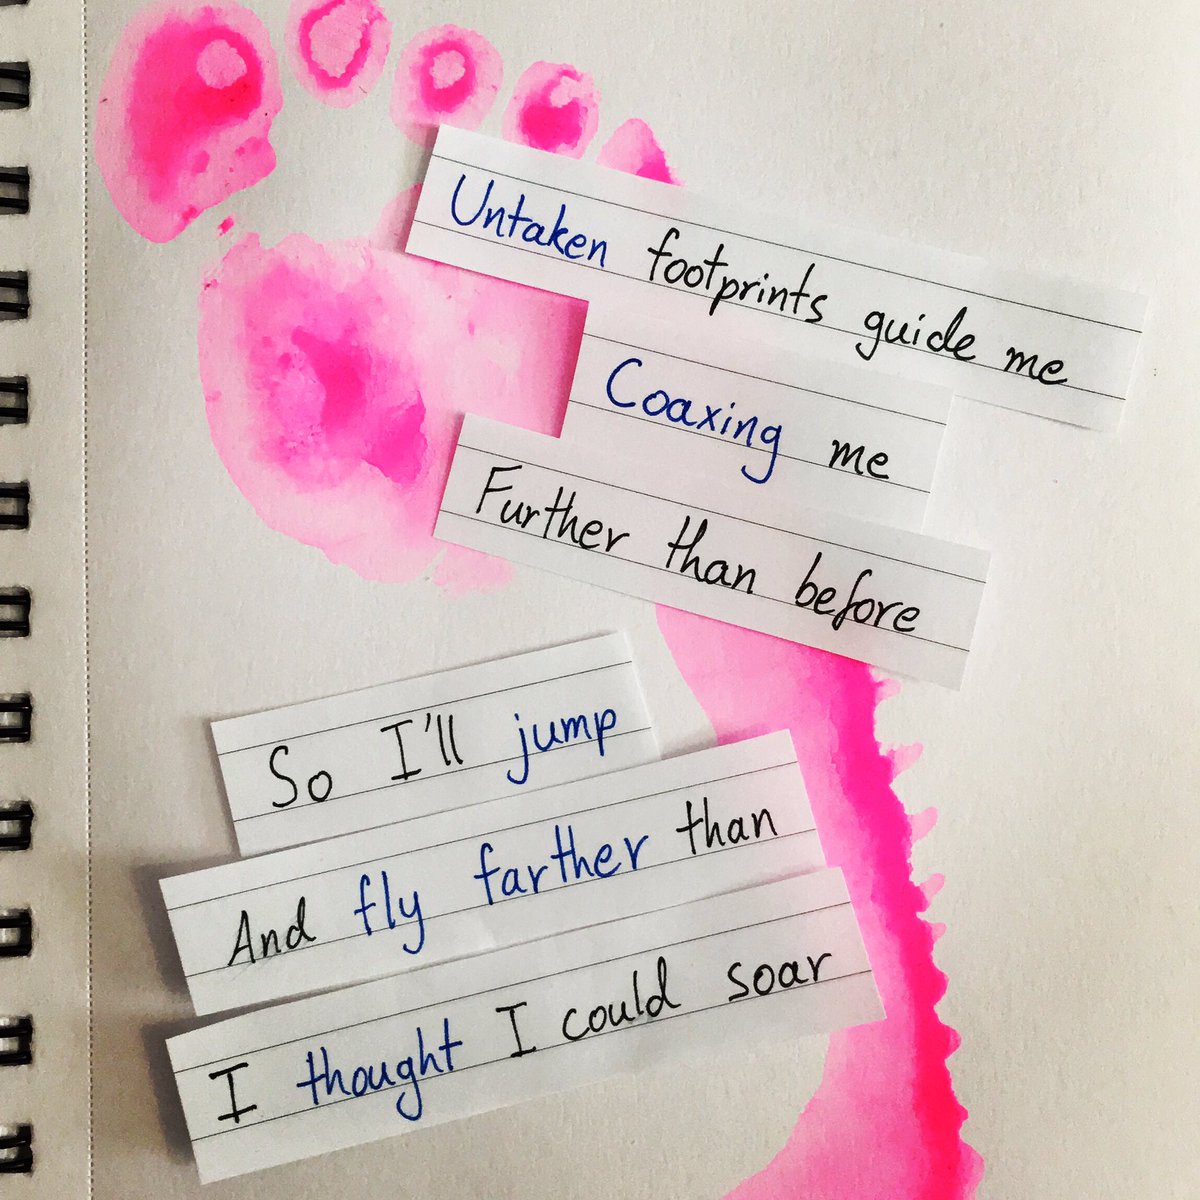 Untaken footprints guide me
Coaxing me
Further than before
So I'll jump
And fly farther than
I thought I could soar